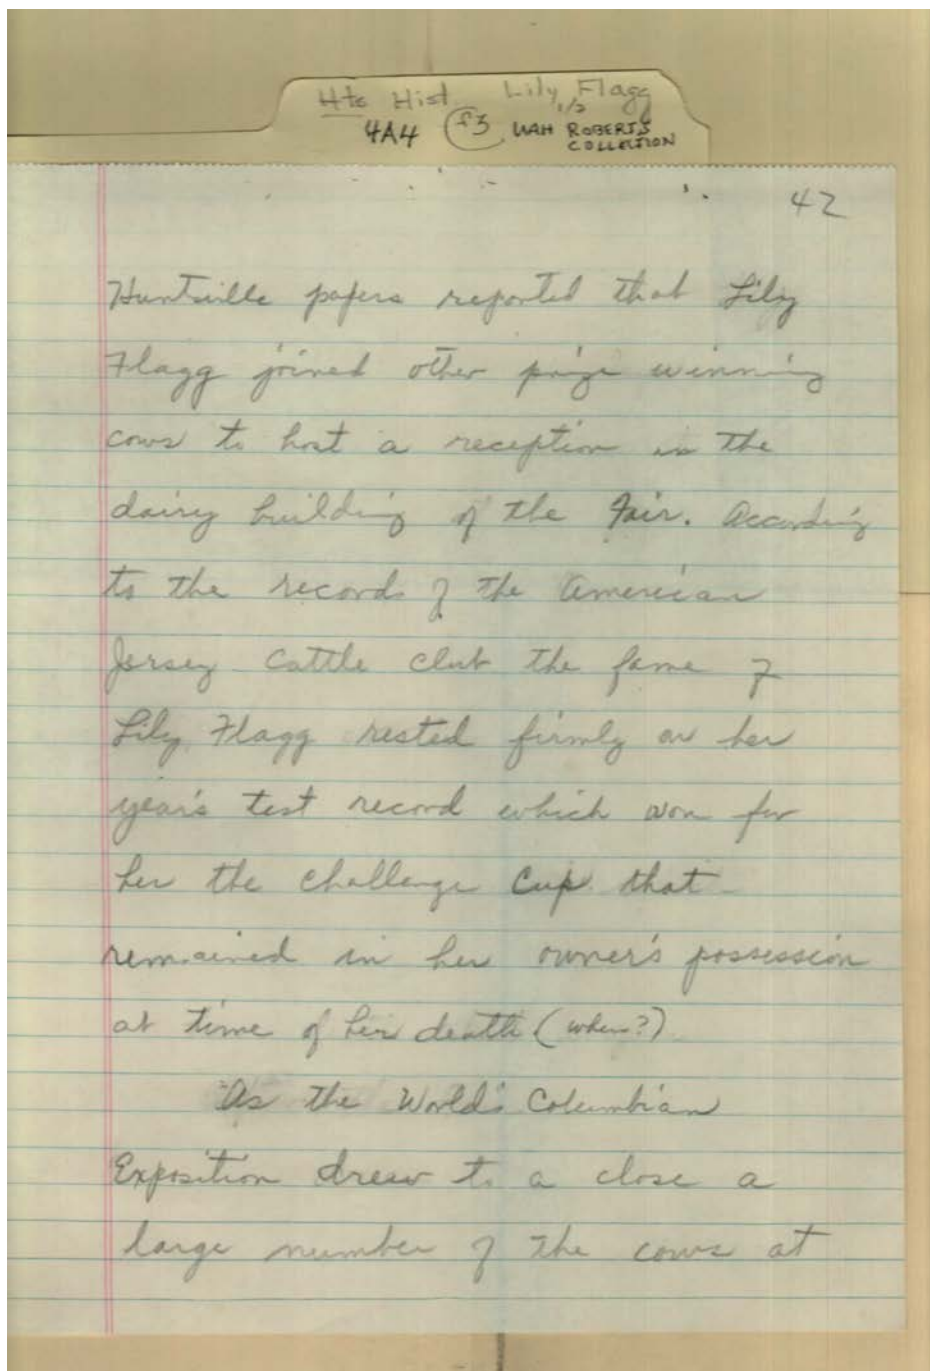 Hts Hist Lily Flagg
1/2
4A4 f3 UAH ROBERTS
COLLECTION
42
Huntsville papers reported that Lily
Flagg joined other prize winning
cows to host a reception in the
dairy building of the Fair. According
to the records of the American
Jersey Cattle club the fame of
Lily Flagg rested firmly on her
year's test record which won for
her the challenge Cup that
remained in her owner's possession
at time of her death (when?)
As the World's Columbian
Exposition drew to a close a
large number of the cows at